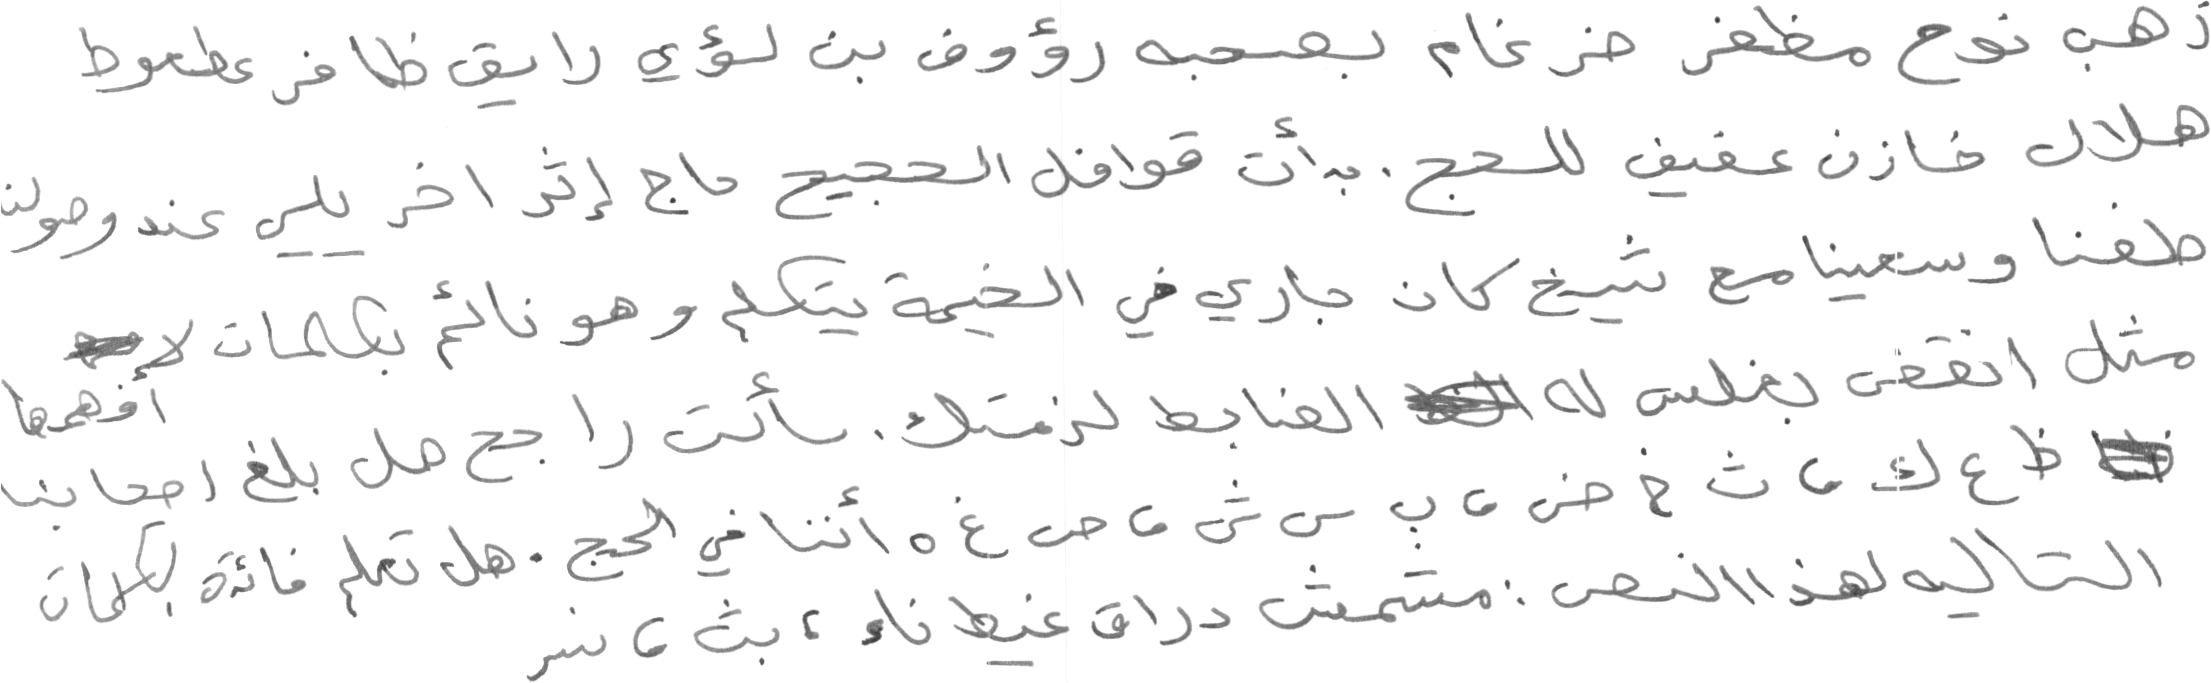 ذهب نوح مظفر ضرغام بصحبه رؤوف بن لؤي رايق ظافر عطعوط
هلال خازن عفيف للحج. بدأت قوافل الحجيج حاج إثر اخر يلي عند وصولنا
طفنا وسعينا مع شيخ كان جاري في الخيمة يتكلم وهو نائم بكلمات لا أفهمها
مثل انقض بغلس له الضابط لزمتك. سألت راجح هل بلغ اصحابنا
ظ ع ك ء ث خ ض ء ب س ش ء ص غ ه أننا في الحج. هل تعلم فائدة لكلمات
التاليه لهذا النص: مشمش دراق غيظ ناء ، بث ء نسر